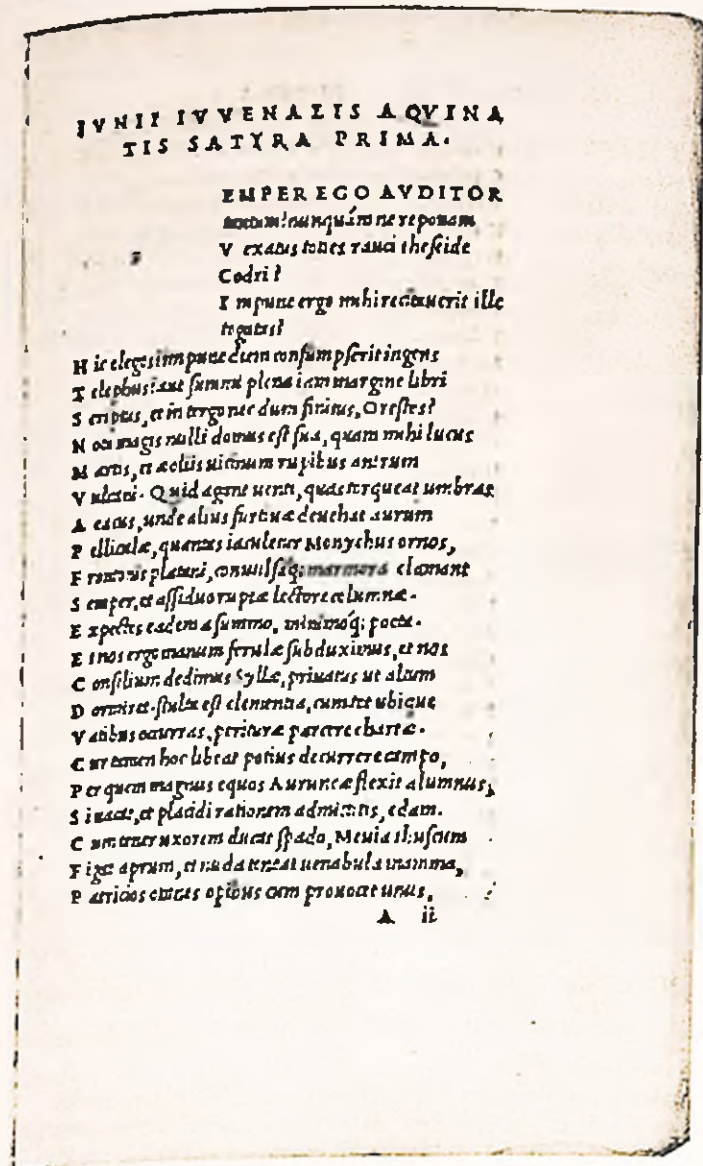 IVNII IVVENALIS AQVINA
TIS SATYRA PRIMA.
EMPER EGO AVDITOR
tantum? nunquám ne reponam
V exatus toties rauci theseide
Codri?
I mpune ergo mihi recitauerit ille
togatas?
H ic elegos? impune diem consumpserit ingens
T elephus? aut summi plena iam margine libri
S criptus, et in tergo nec dum finitus, Orestes?
N ota magis nulli domus est sua, quam mihi lucus
M artis, et æoliis uicinum rupibus antrum
V ulcani. Quid agant uenti, quas torqueat umbras
A eacus, unde alius furtiuæ deuehat aurum
P elliculæ, quantas iaculetur Monychus ornos,
F rontonis platani, conuulsaq; marmora clamant
S emper, et assiduo ruptæ lectore columnæ.
E xpectes eadem a summo, minimoq́; poeta.
E t nos ergo manum ferulæ subduximus, et nos
C onsilium dedimus Syllæ, priuatus ut altum
D ormiret. stulta est clementia, cum tot ubique
V atibus occurras, perituræ parcere chartæ.
C ur tamen hoc libeat potius decurrere campo,
P er quem magnus equos Auruncæ flexit alumnus,
S i uacat, et placidi rationem admittitis, edam.
C um tener uxorem ducat spado, Meuia thuscum
F igat aprum, et nuda teneat uenabula mamma,
P atricios omnes opibus cum prouocet unus,
A ii